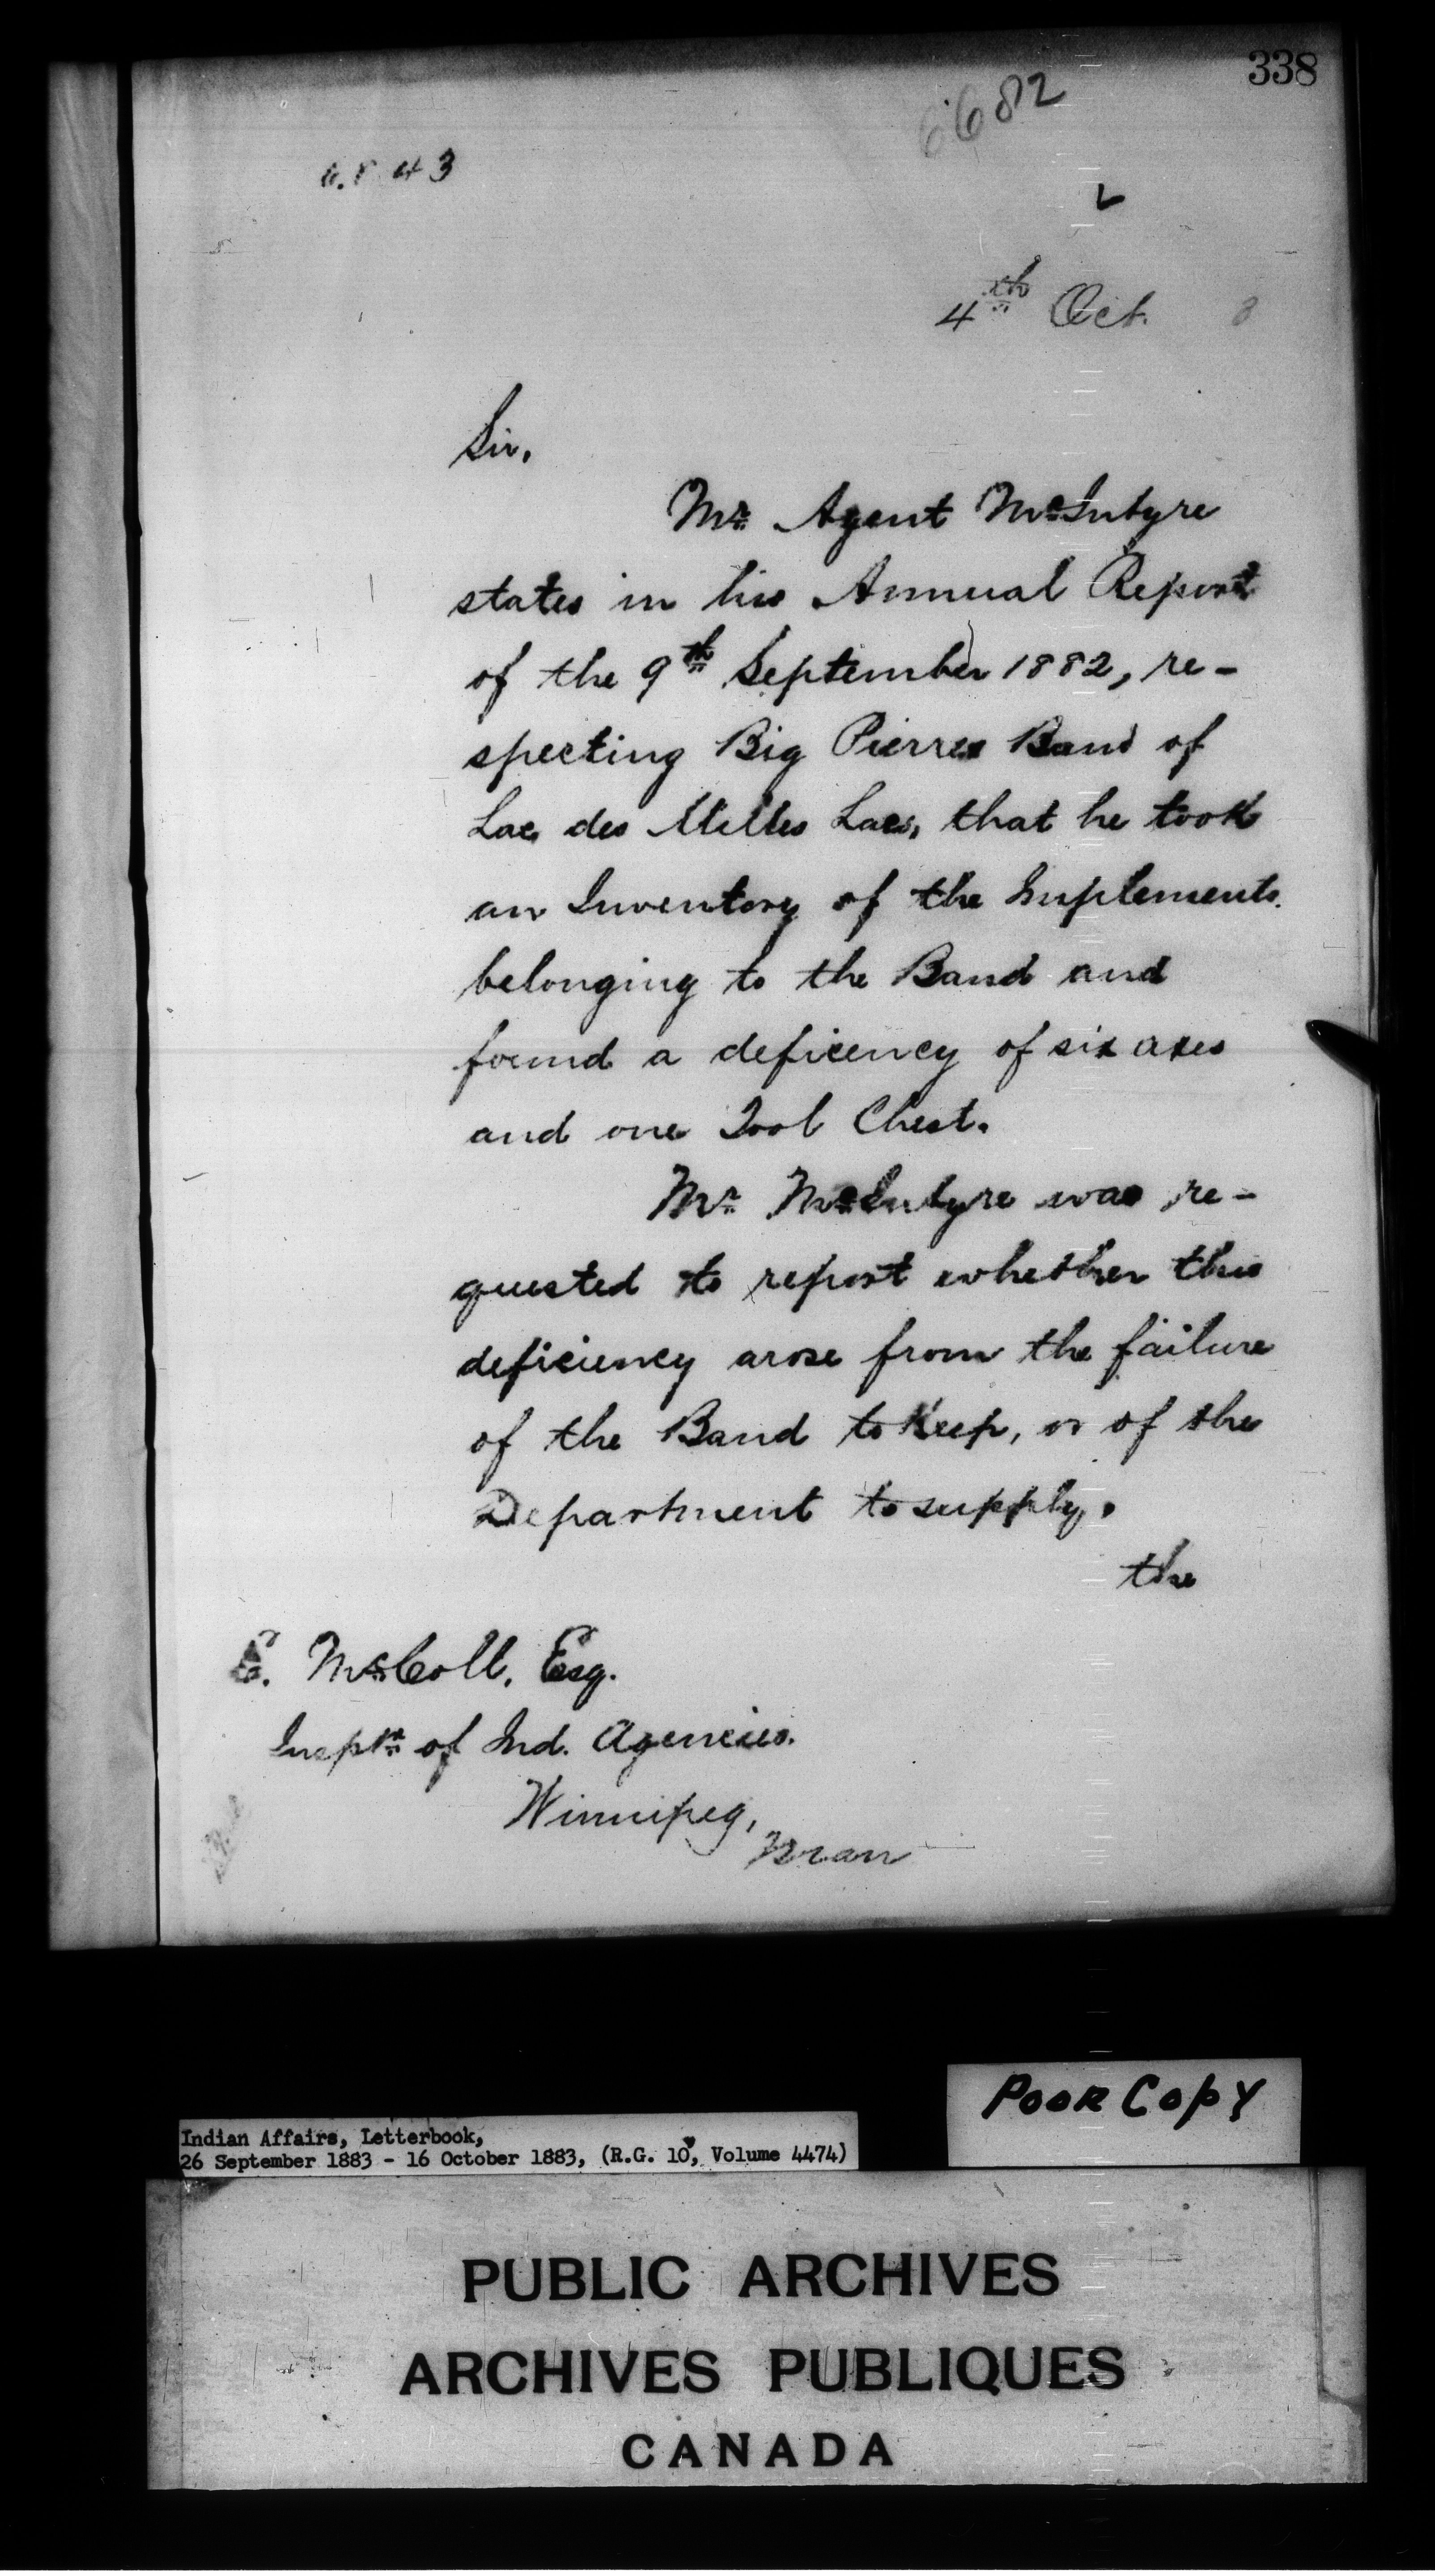 338
6682
4th Oct. 3
Sir,
Mr. Agent McIntyre
states in his Annual Report
of the 9th September 1882, re-
specting Big Pierres Band of
Lac des Milles Lacs, that he took
an Inventory of the Implements
belonging to the Band and
found a deficency of six axes
and one Tool Chest.
Mr. McIntyre was re-
quested to report whether this
deficiency arose from the failure
of the Band to keep, or of the
Department to supply.
the
E. McColl, Esq.
Insptr. of Ind. Agencies.
Winnipeg,
Man
Poor Copy
Indian Affairs, Letterbook,
26 September 1883 - 16 October 1883, (R.G. 10, Volume 4474)
PUBLIC ARCHIVES
ARCHIVES PUBLIQUES
CANADA